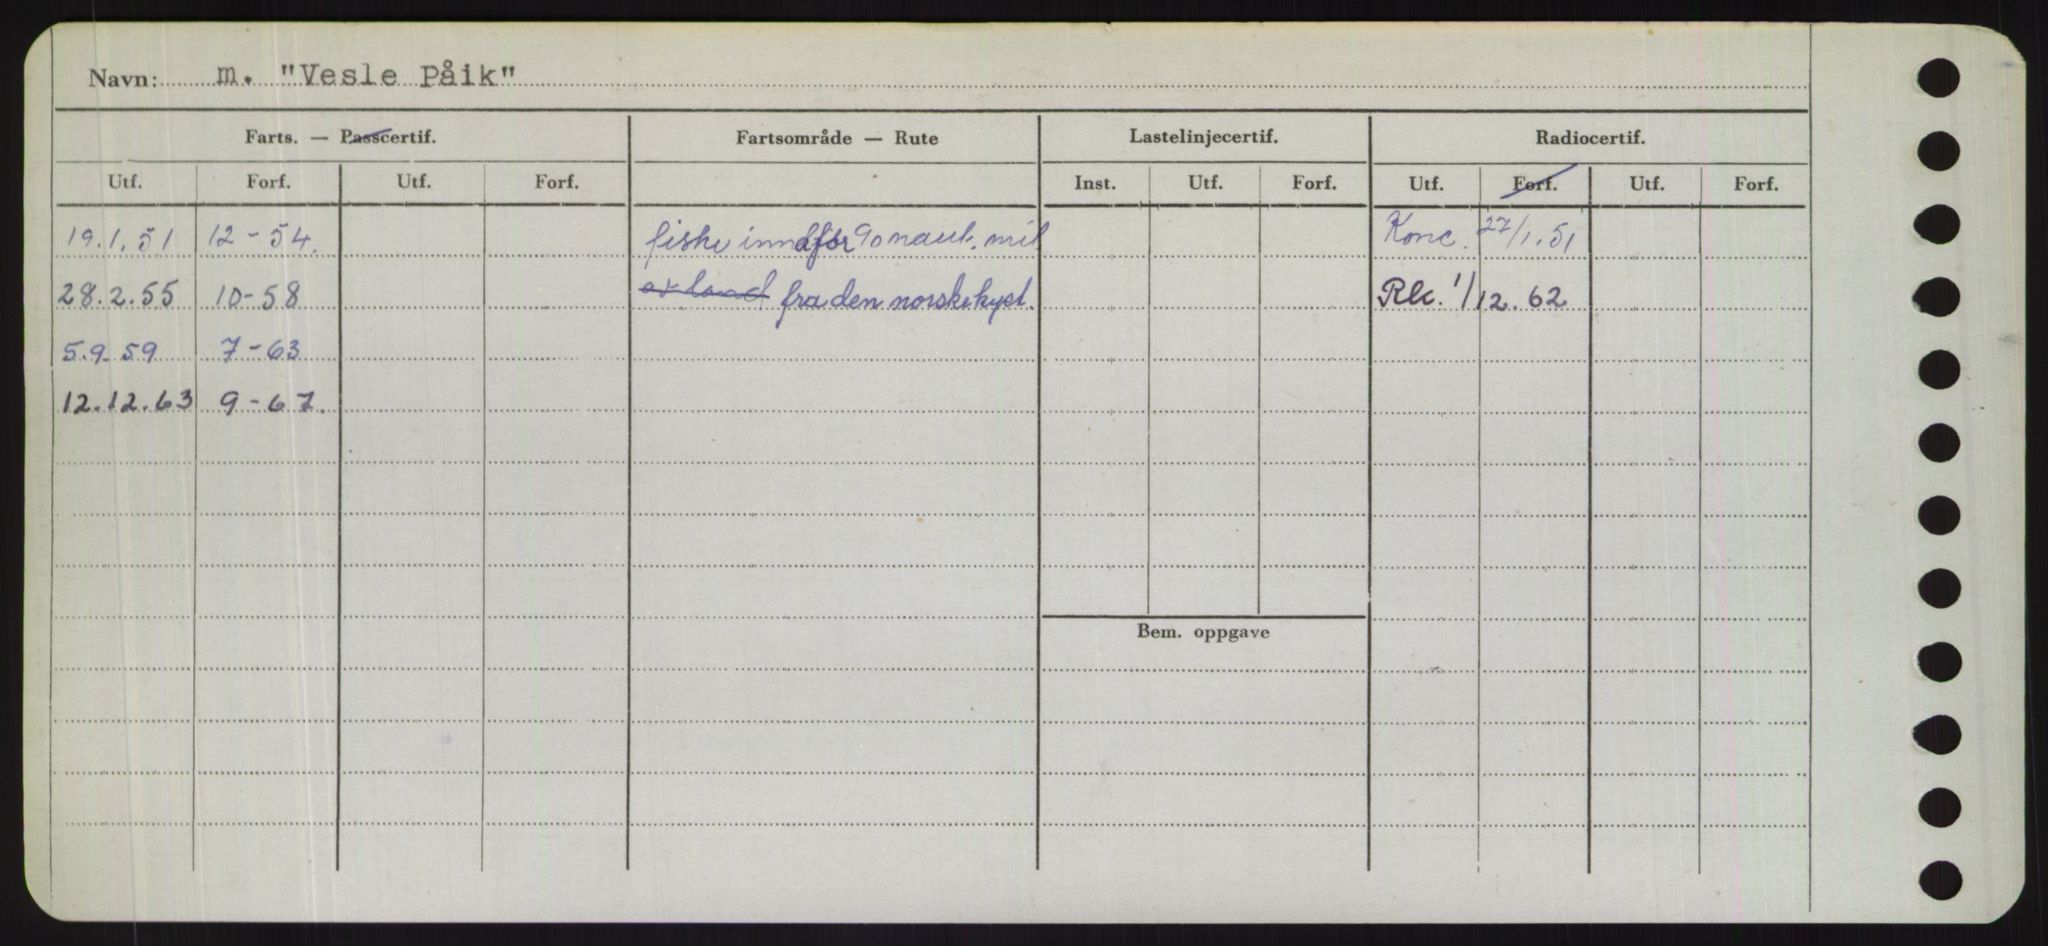 Navn: m. "Vesle Påik"
Farts. — Passcertif. Fartsområde — Rute Lastelinjecertif. Radiocertif.
Utf. Forf. Utf. Forf. Inst. Utf. Forf. Utf. Forf. Utf. Forf.
19.1.51 12-54. fiske innafor 90 naut. mil Konc. 27/1.51
28.2.55 10-58 av land fra den norske kyst. Rk. 1/12.62
5.9.59 7-63
12.12.63 9-67.
Bem. oppgave